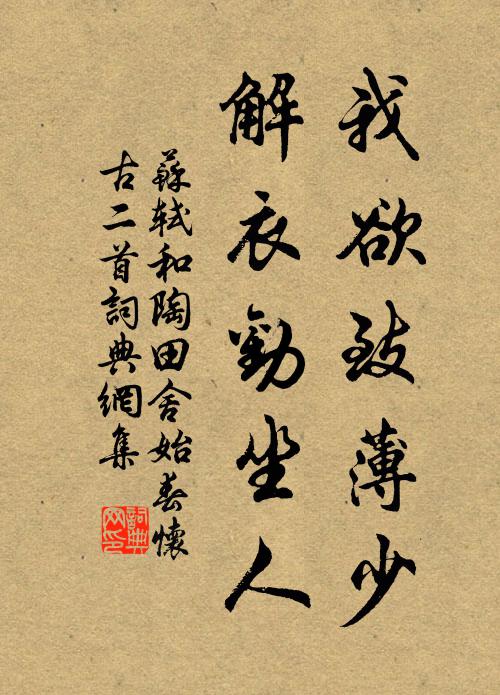 我欲致薄少
解衣勸坐人
蘇軾和陶田舍始春懷
古二首詞典網集
詞典網印